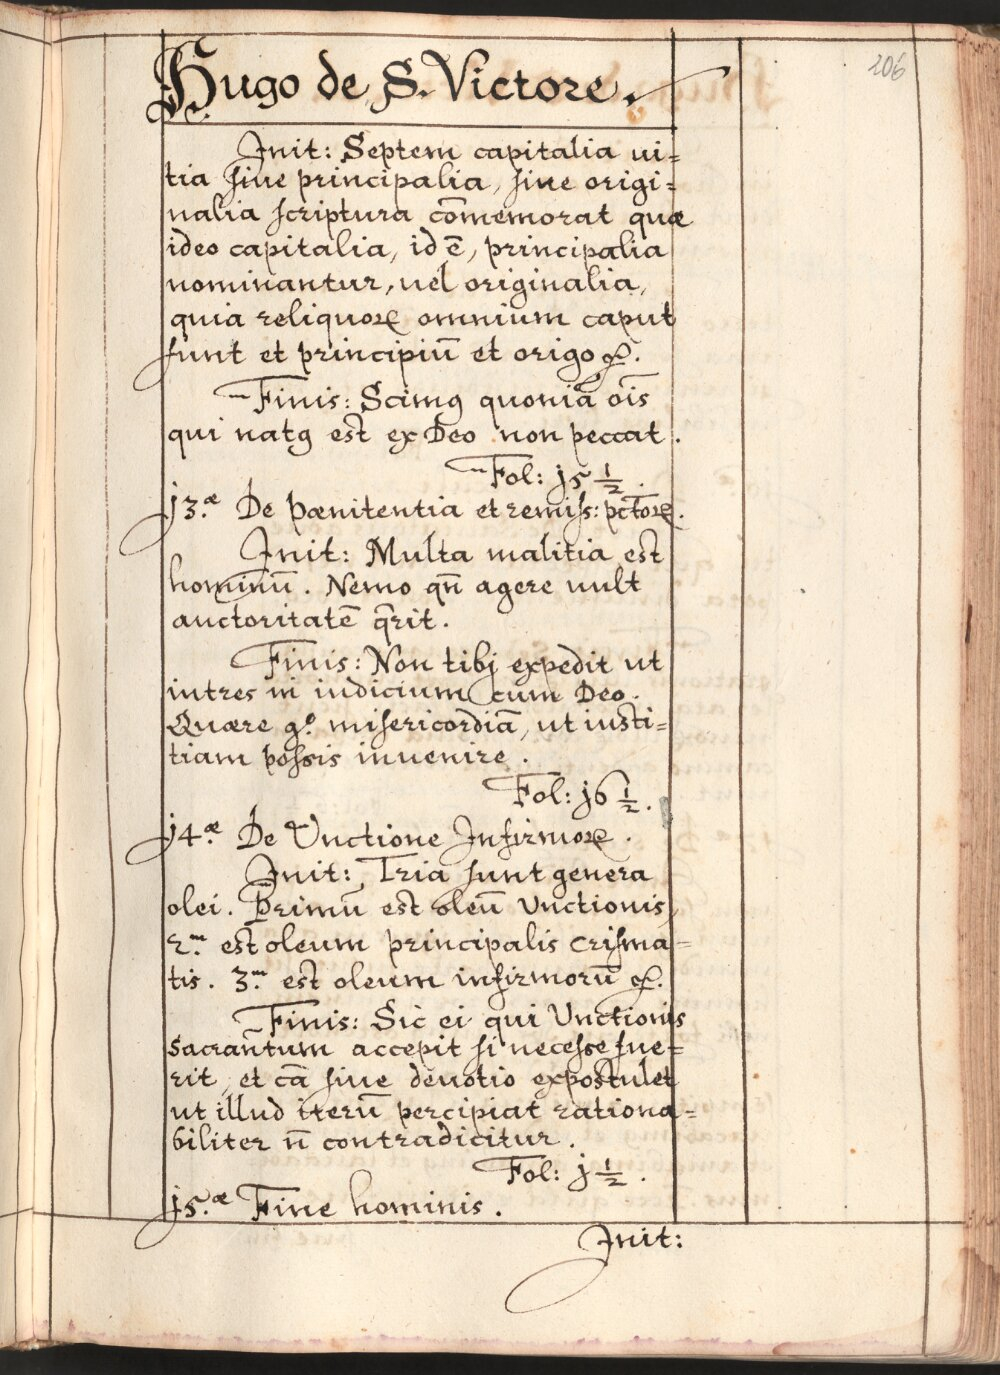 206
Hugo de S. Victore.
Init: Septem capitalia ui=
tia siue principalia, siue origi=
nalia scriptura com̄emorat quæ
ideo capitalia, id ē, principalia
nominantur, uel originalia,
quia reliquoꝝ omnium caput
sunt et principiū et origo &.
Finis: Scimꝯ quoniā oīs
qui natꝯ est ex Deo non peccat.
Fol: j5 ½.
j3.æ De pænitentia et remiss: pctoꝝ.
Init: Multa malitia est
hominū. Nemo qn̄ agere uult
auctoritatē q̄rit.
Finis: Non tibj expedit ut
intres in iudicium cum Deo.
Quære g.º misericordiā, ut iusti=
tiam possis inuenire.
Fol: j6 ½.
j4.æ De Unctione Infirmoꝝ.
Init: Tria sunt genera
olei. Primū est oleū Unctionis,
2.m est oleum principalis crisma=
tis. 3.m est oleum infirmorū &.
Finis: Sic ei qui Unctionis
Sacram̄tum accepit si necesse fue=
rit, et cā siue deuotio expostulet
ut illud iterū percipiat rationa=
biliter n̄ contradicitur.
Fol: j ½.
j5.æ Fine hominis.
Init: